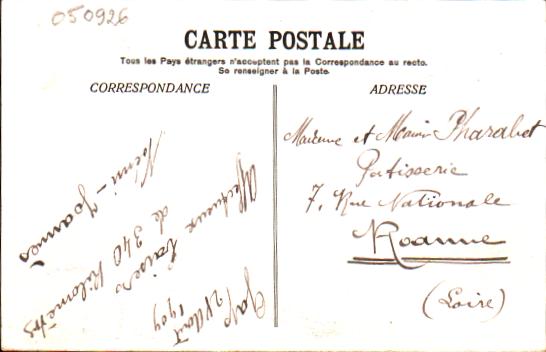 050926
CARTE POSTALE
Tous les Pays étrangers n'acceptent pas la Correspondance au recto.
Se renseigner à la Poste.
CORRESPONDANCE
ADRESSE
Gap
1909
Affectueux baisers
de 340 kilomètres
Henri - Joannès
Madame et Pharabet
Patisserie
7, Rue Nationale
Roanne
(Loire)